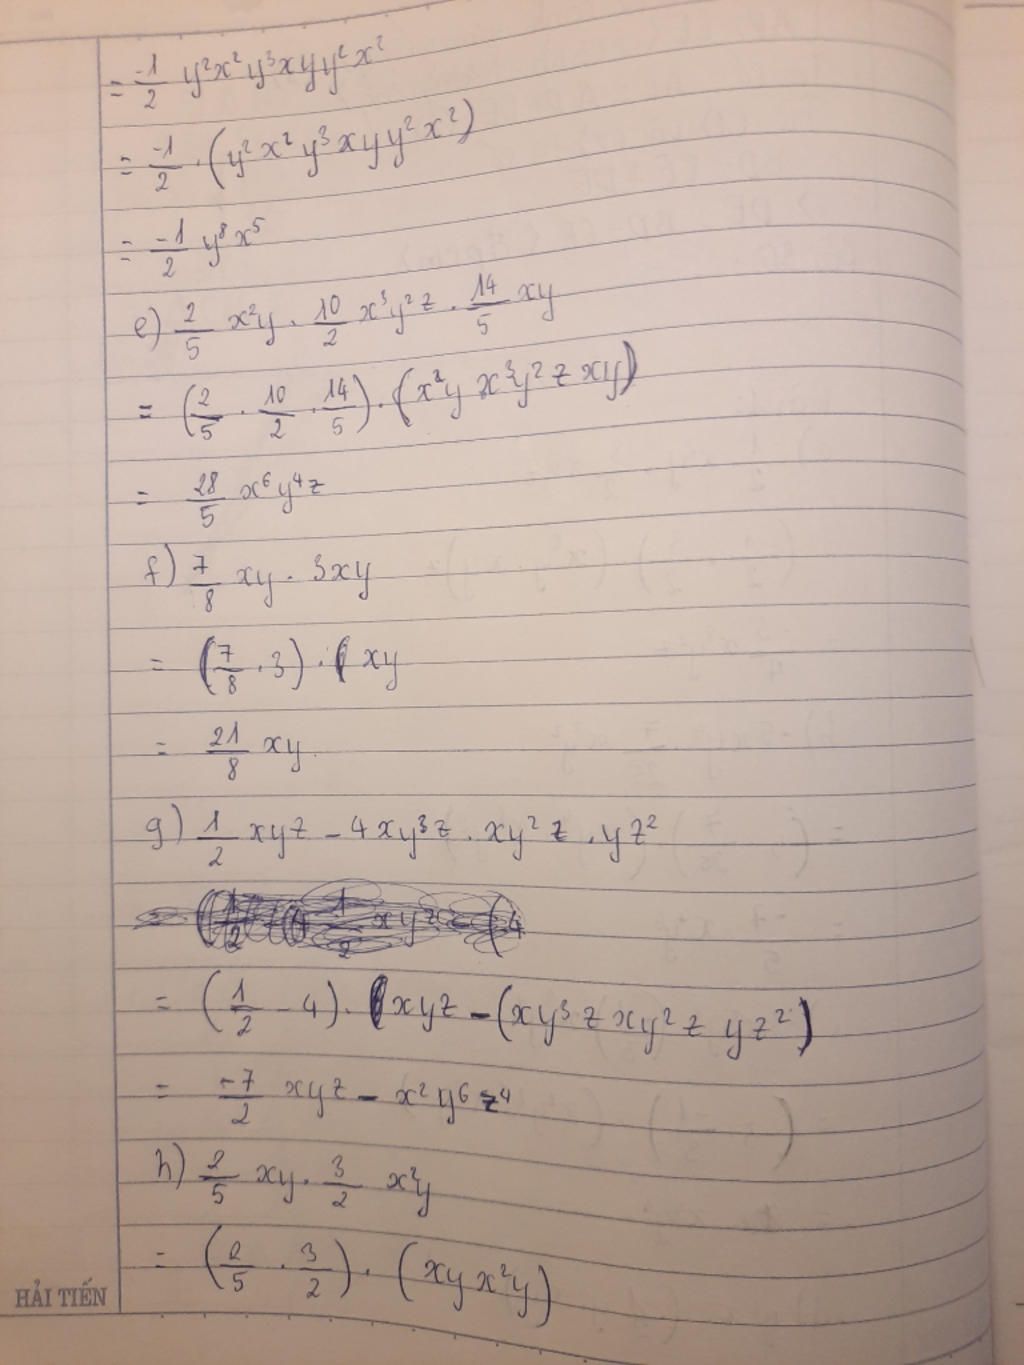 = -1/2 y²x²y³xyy²x²
= -1/2 . (y²x²y³xyy²x²)
= -1/2 y⁸x⁵
e) 2/5 x²y . 10/2 x³y²z . 14/5 xy
= (2/5 . 10/2 . 14/5) . (x²y x³y²z xy)
= 28/5 x⁶y⁴z
f) 7/8 xy . 3xy
= (7/8 . 3) . ( xy
= 21/8 xy
g) 1/2 xyz - 4xy³z . xy²z . yz²
= (1/2 - 4) . (xyz - (xy³z xy²z yz²)
= -7/2 xyz - x²y⁶z⁴
h) 2/5 xy . 3/2 x²y
= (2/5 . 3/2) . (xy x²y)
HẢI TIẾN